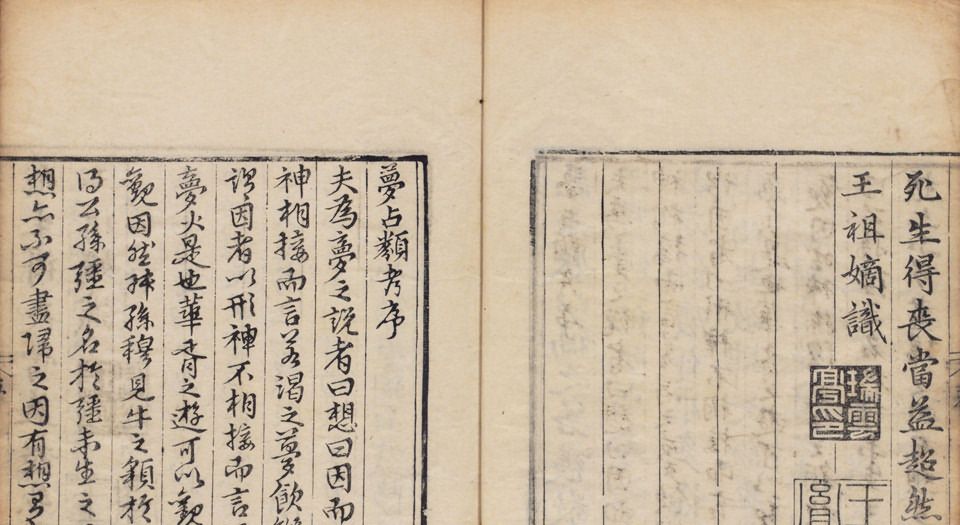 死生得喪當益超然
王祖嫡識
夢占類考序
夫為夢之說者曰想曰因而
神相接而言若渴之夢飲
謂因者以形神不相接而言
夢火是也華胥之遊可以觀
觀因然叔孫穆見牛之貌於
公孫彊之名於彊未生之
想亦不可盡歸之因有想